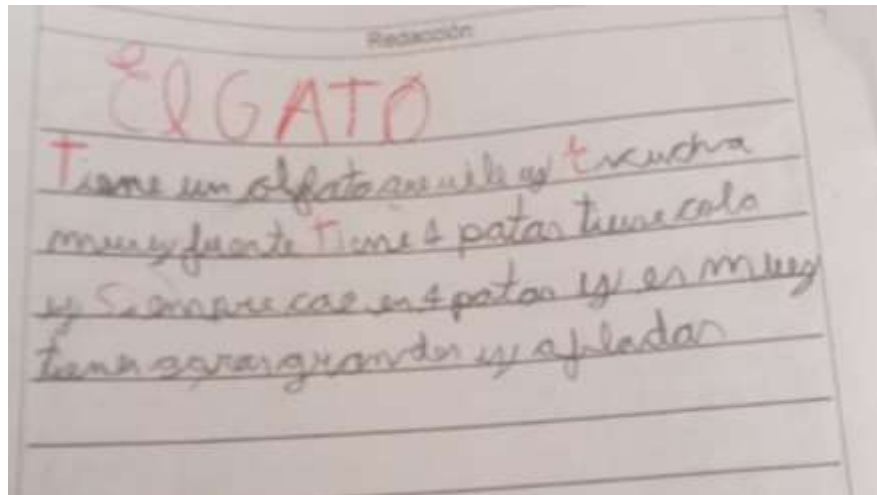 Redacción
El GATO
Tiene un olfato que uele y Escucha
muy fuente Tiene 4 patas tiene cola
y Siempre cae en 4 patas y es muy
tiene garas grandes y afiladas